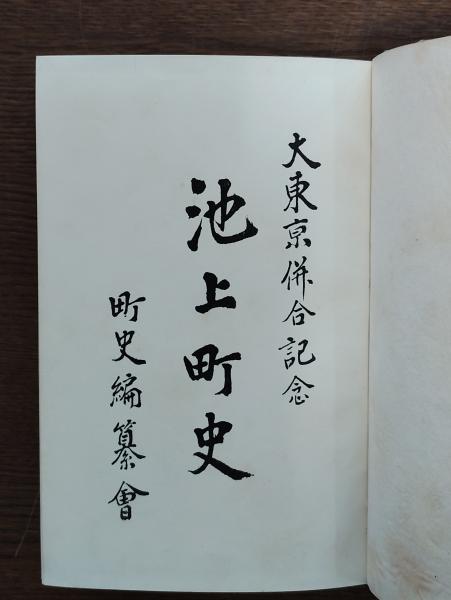 大東京併合記念
池上町史
町史編纂會